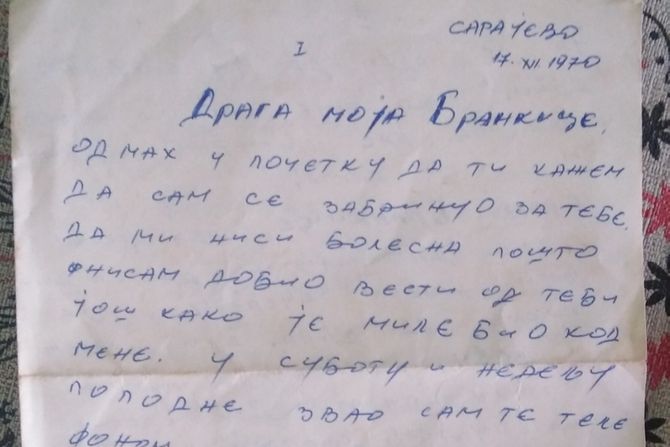 САРАЈЕВО
I
17. XI. 1970
ДРАГА МОЈА БРАНКИЦЕ,
ОДМАХ У ПОЧЕТКУ ДА ТИ КАЖЕМ
ДА САМ СЕ ЗАБРИНУО ЗА ТЕБЕ.
ДА МИ НИСИ БОЛЕСНА ПОШТО
НИСАМ ДОБИО ВЕСТИ ОД ТЕБИ
ЈОШ КАКО ЈЕ МИЛЕ БИО КОД
МЕНЕ. У СУБОТУ И НЕДЕЉУ
ПОПОДНЕ ЗВАО САМ ТЕ ТЕЛЕ
ФОНОМ